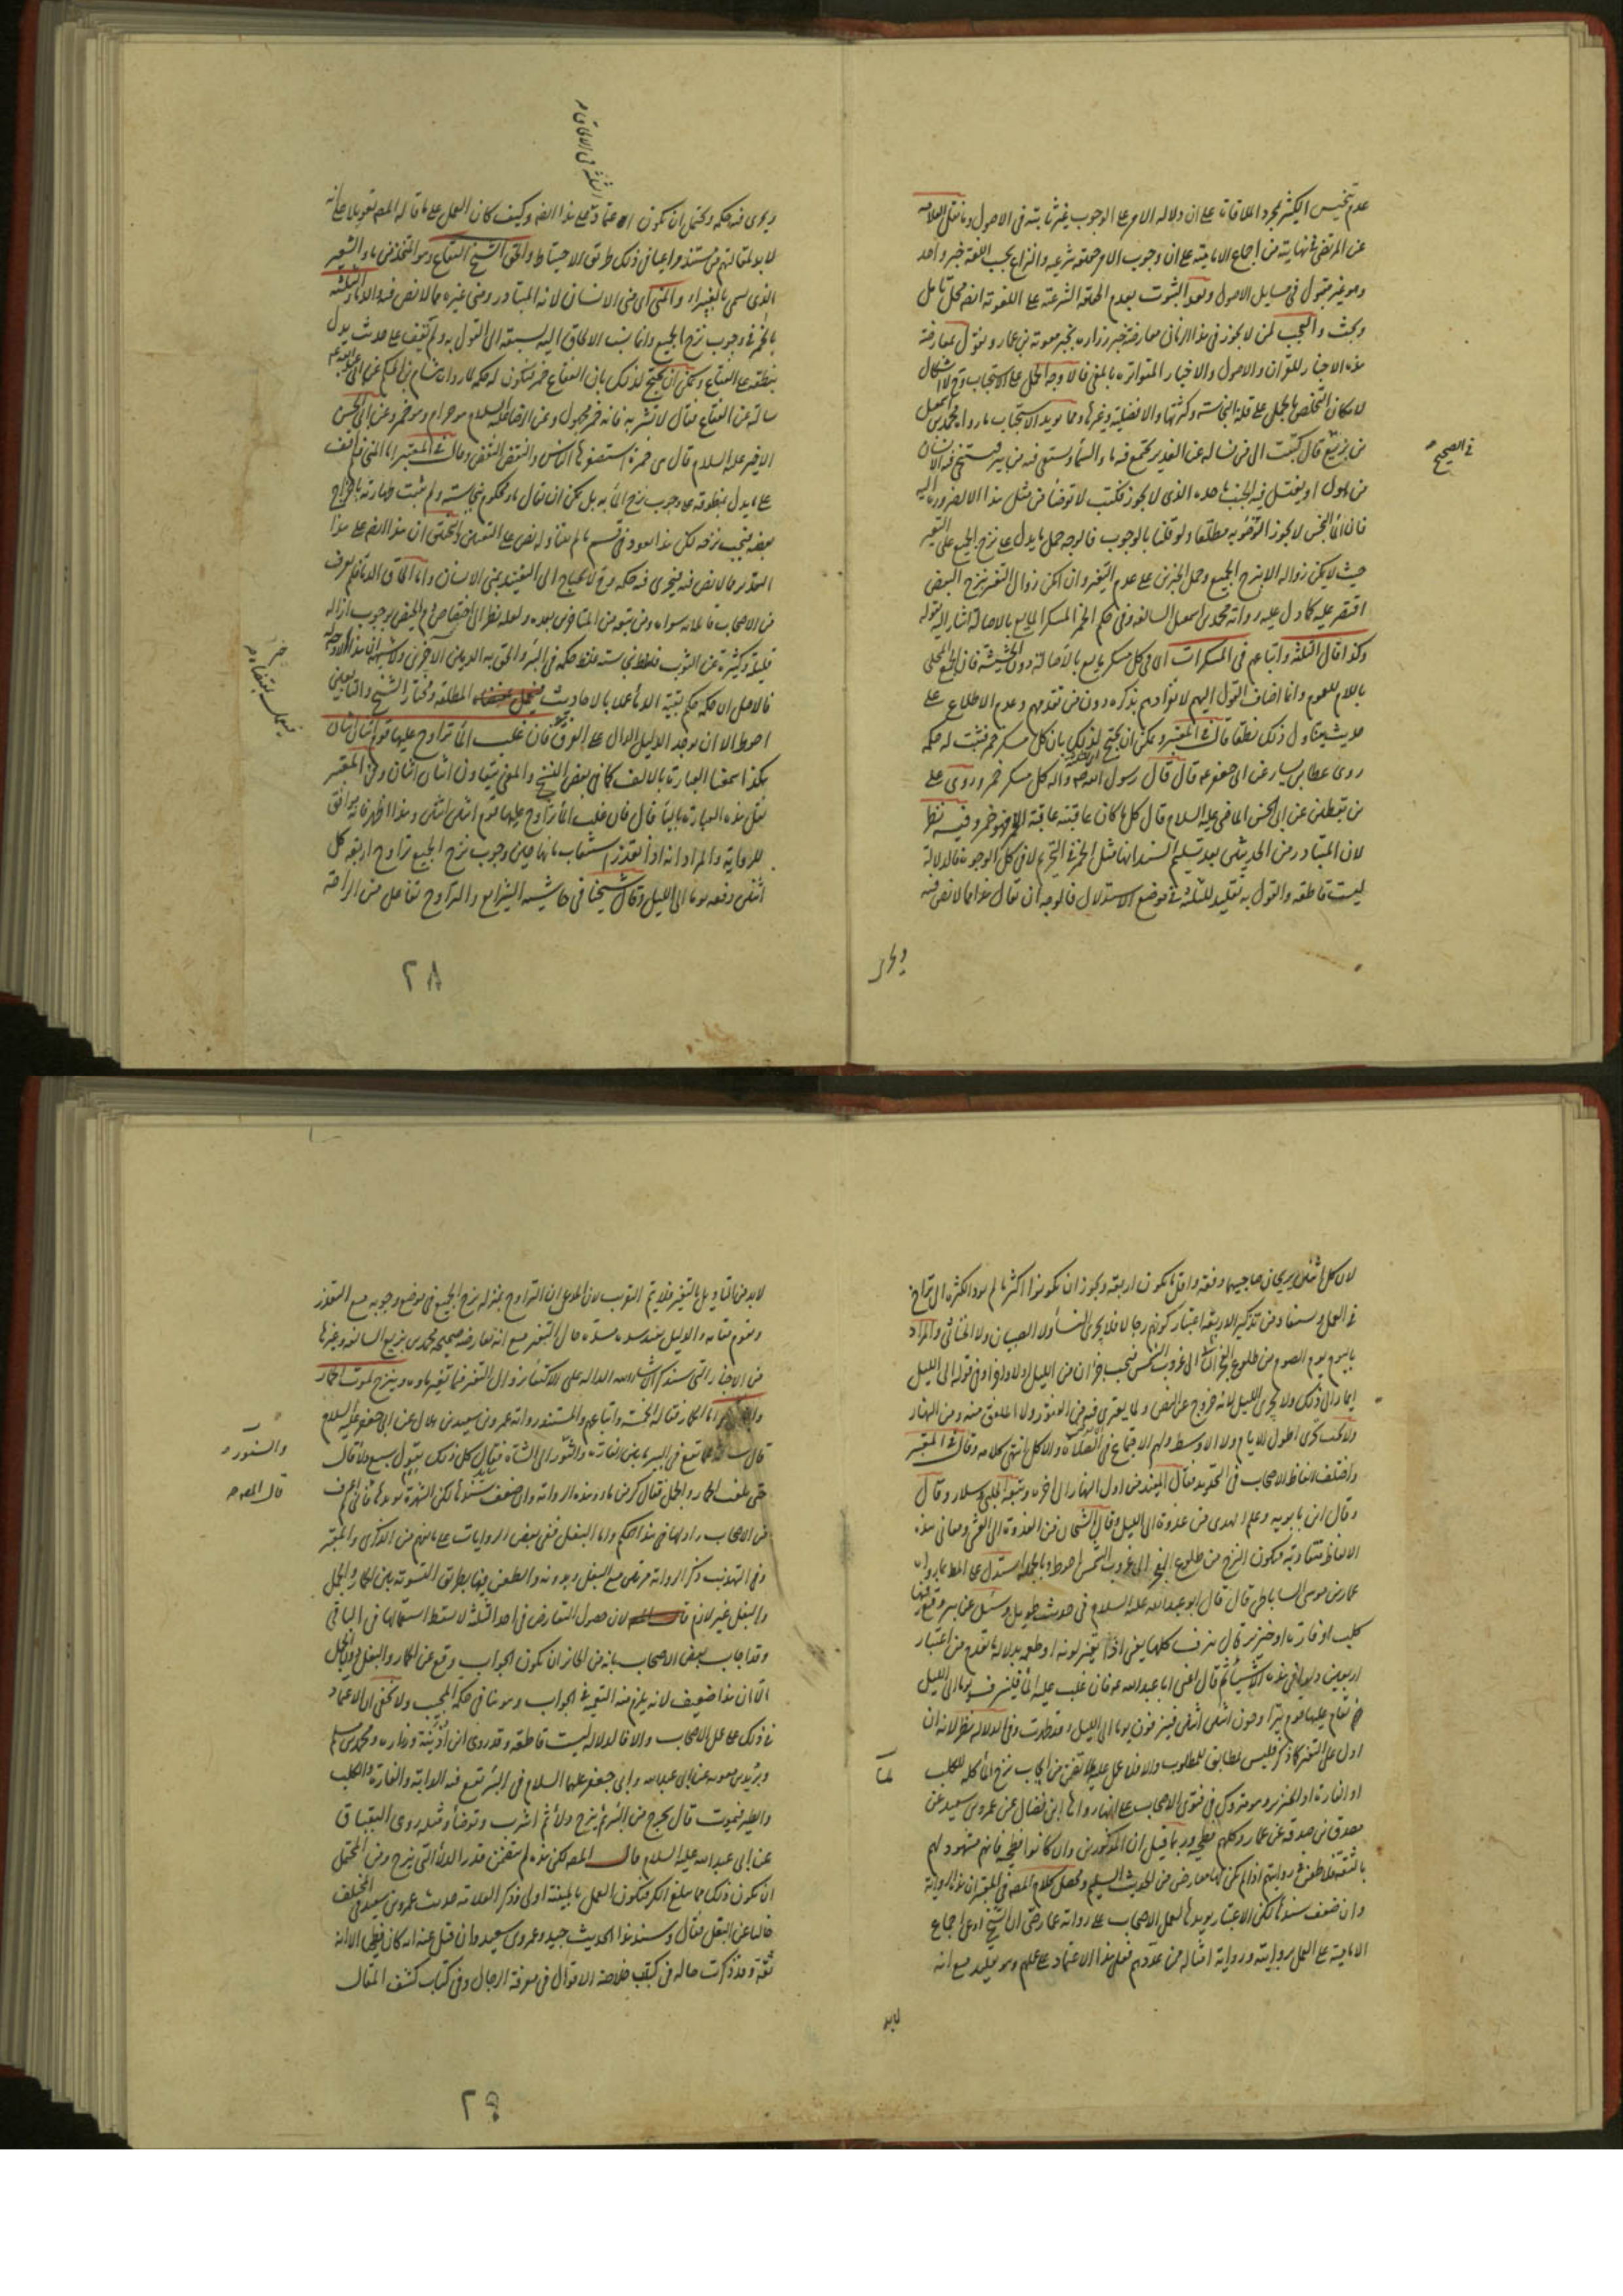 عدم تنجيس الكثير بمجرد الملاقات على ان دلالة الامر على الوجوب غير ثابتة فى الاصول وما نقل العلامه
عن المرتضى فى نهايته من اجماع الامامية على ان وجوب الامر حقيقة شرعية والنزاع بحسب اللغة خبر واحد
وهو غير مقبول فى مسايل الاصول وبعد الثبوت بعدم الحقيقة الشرعية على اللغوية ايضا محل تامل
وبحث والعجب لمن لا يجوز فى هذا الزمان معارضة خبر زراره بخبر معوية بن عمار ويقول بمعارضة
هذه الاخبار للقران والاصول والاخبار المتواترة بالمعنى فالاوجه الحمل على الاستحباب وح لا اشكال
لامكان التخلص بالحمل على قلة النجاسة وكثرتها والافضلية وغيرها ومما يويد الاستحباب ما رواه محمد بن اسمعيل
فى الصحيح
بن بزيع قال كتبت الى من يساله عن الغدير يجتمع فيه ماء السماء ويستقى فيه من بير فيستنجى فيه الانسان
من بول او يغتسل فيه الجنب ما حده الذى لا يجوز فكتب لا توضأ من مثل هذا الا لضرورة اليه
فان الماء النجس لا يجوز التوضوء به مطلقا ولو قلنا بالوجوب فالوجه حمل ما يدل على نزح الجميع على التغير
حيث لا يمكن زواله الا بنزح الجميع وحمل الجزئين على عدم التغير وان امكن زوال التغير بنزح البعض
اقتصر عليه كما دل عليه رواية محمد بن اسمعيل السالفة وفى حكم الخمر المسكر المايع بالاصالة اشار اليه بقوله
وكذا قال الثلثة واتباعهم فى المسكرات اى فى كل مسكر مايع بالاصالة دون الحشيشة فان الجمع المحلى
باللام للعموم وانما اضاف القول اليهم لانفرادهم بذكره دون من تقدمهم وعدم الاطلاع على
حديث يتناول ذلك نطقا قال فى المعتبر ويمكن ان يحتج لذلك بان كل مسكر خمر فثبت له حكمه
روى عطا بن يسار عن ابى جعفر ع قال قال رسول الله صلى الله عليه واله كل مسكر خمر وروى على
بن يقطين عن ابى الحسن الماضى عليه السلام قال كل ما كان عاقبته عاقبة الخمر فهو خمر وفيه نظر
لان المتبادر من الحديثين بعد تسليم السند انها مثل الخمر فى التحريم لا فى كل الوجوه فالدلالة
ليست قاطعة والقول به تقليد للثلثة فى موضع الاستدلال فالوجه ان يقال هذا مما لا نص فيه
ويجرى
الثلثة فى الالحاق م
ويجرى فيه حكمه ويحتمل ان يكون الاعتماد على هذا النص وكيف كان العمل على ما قاله المصر تعويلا على انه
لا بد لمقالتهم من مستند مراعيا فى ذلك طريق الاحتياط والحق الشيخ الفقاع وهو المتخذ من ماء الشعير
الذى يسمى بالغبيراء والمنى اى منى الانسان لانه المتبادر ومنى غيره مما لا نص فيه والدماء الثلثة
بالخمر فى وجوب نزح الجميع وانما نسب الالحاق اليه لسبقه الى القول به ولم نقف على حديث يدل
بنطقه على الفقاع ويمكن ان يحتج لذلك بان الفقاع خمر فيكون له حكمه لما رواه هشام بن الحكم عن ابى عبد الله ع
سالته عن الفقاع فقال لا تشربه فانه خمر مجهول وعن الرضا عليه السلام هو حرام وهو خمر وعن ابى الحسن
الاخير عليه السلام قال هى خمرة استصغرها الناس وانتقض النقض وقال فى المعتبر اما المنى فلم نقف
على ما يدل بنطوقه على وجوب نزح الماء به بل يمكن ان يقال ماء محكوم بنجاسته ولم تثبت طهارته باخراج
بعضه فيجب نزحه لكن هذا يعود فى قسم ما لم يتناوله نص على التعيين والحق ان هذا النص على هذا
التقدير مما لا نص فيه فيجرى فيه حكمه وح لا يحتاج الى التقييد بمنى الانسان واما الحاق الدماء فلم نعرف
من الاصحاب قائلا به سواه ومن تبعه من المتاخرين بعده ولعله نظر الى اختصاص دم الحيض بوجوب ازالة
قليله وكثيره عن الثوب فغلظ نجاسته فغلظ حكمه فى البئر والحق به الدمين الاخرين
خبر
فيعمل بمقتضاه م
فالاصل ان حكمه حكم بقية الدماء عملا بالاحاديث المطلقة ومختار الشيخ واتباعه يعنى
احوط الا ان يوجد الدليل الدال على الفرق فان غلب الماء تراوح عليها قوم اثنان اثنان
هكذا سمعنا العبارة بالالف كما فى بعض النسخ والمعنى يتعاون اثنان اثنان وفى المعتبر
نقل هذه العبارة بالياء قال فان غلب الماء تراوح عليها قوم اثنين اثنين وهذا اظهر فانه يوافق
للرواية والمراد انه اذا تعذر استيعاب مائها حين وجوب نزح الجميع تراوح اربعة كل
اثنين دفعة يوما الى الليل وقال شيخنا فى حاشية الشرايع والتراوح تفاعل من الراحة
٢٨
لان كل اثنين يريحان صاحبيهما دفعة واقل ما يكون اربعة ويجوز ان يكونوا اكثر ما لم يود الكثرة الى التراخى
فى العمل ويستفاد من تذكير الاربعة اعتبار كونهم رجالا فلا يجزى النساء ولا الصبيان ولا الخناثى والمراد
باليوم يوم الصوم من طلوع الفجر الثانى الى غروب الشمس فيجب جزءان من الليل اولا واخرا وفى قوله الى الليل
ايماء الى ذلك ولا يجزى الليل لانه خروج عن النص ولما يعترى فيه من الفتور ولا الملفق منه ومن النهار
ولا يجب تحرى اطول الايام ولا الاوسط ولهم الاجتماع فى الصلاة والاكل انتهى كلامه وقال فى المعتبر
واختلف الفاظ الاصحاب فى التحديد فقال المفيد من اول النهار الى اخره وتبعه الحلبى وسلار وقال
وقال ابن بابويه وعلم الهدى من غدوة الى الليل وقال الشيخان من الغدوة الى العشى ومعانى هذه
الالفاظ متقاربة فيكون النزح من طلوع الفجر الى غروب الشمس احوط وبالجملة استدل على المط بما رواه
عمار بن موسى الساباطى قال قال ابو عبد الله عليه السلام فى حديث طويل وسئل عن بير وقع فيها
كلب او فارة او خنزير قال ينزف كلها يعنى اذا تغير لونه او طعمه بدلالة ما تقدم من اعتبار
اربعين دلوا فى هذه الاشياء ثم قال اعنى ابا عبد الله ع فان غلب عليه الماء فلينزف يوما الى الليل
ثم يقام عليها قوم يتراوحون اثنين اثنين فينزفون يوما الى الليل وقد طهرت وفى الدلالة نظر لانه ان
اول على التغير كما ذكر فليس يطابق للمطلوب والا فلا عمل عليه لتضمن ايجاب نزح الماء كله للكلب
لما
او الفارة او الخنزير وهو متروك فى فتوى الاصحاب على انها رواها ابن فضال عن عمرو بن سعيد عن
مصدق بن صدقة عن عمار وكلهم فطحية وربما قيل ان المذكورين وان كانوا فطحية فانهم مشهود لهم
بالثقة فلا طعن فى روايتهم اذا لم يكن لها معارض من الحديث السليم ومحصل كلام المصر فى المعتبر ان هذه الرواية
وان ضعف سندها لكن الاعتبار يويدها لعمل الاصحاب على رواية عمار حتى ان الشيخ ادعى اجماع
الامامية على العمل بروايته ورواية امثاله ممن عدهم فعلى هذا الاعتماد على عملهم وهو تقليد مع انه
لابد
لابد من التاويل بالتغير فلا يتم التقريب لان المدعى ان التراوح بمنزلة نزح الجميع فى موضع وجوبه مع التعذر
ويقوم مقامه والدليل بتقدير سنده حال التغير مع انه تعارضه صحيحة محمد بن بزيع السالفة وغيرها
من الاخبار التى سنذكر ان شاء الله الدالة على الاكتفاء بزوال التغير فيما تغير ماوه وينزح لموت الحمار
اما الحمار فقاله الخمسة واتباعهم والمستند رواية عمرو بن سعيد بن هلال عن ابى جعفر عليه السلام
قال سالته عما تقع فى البير ما بين الفارة والسنور الى الشاة فقال كل ذلك يقول سبع دلاء قال
والسنور و
قال المصر م
حتى بلغت الحمار والجمل فقال كر من ماء وهذه الرواية وان ضعف سندها لكن الشهرة تويدها فانى لم اعرف
من الاصحاب رادا لها فى هذا الحكم واما البغل ففى بعض الروايات على ما يفهم من الذكرى والمعتبر
وفى التهذيب ذكر الرواية مرتين مع البغل وبدونه والطعن فيها بطريق التسوية بين الحمار والجمل
والبغل غير لازم لان حصول التعارض فى احد الثلثة لا يسقط استعمالها فى الباقى
وقد اجاب بعض الاصحاب بانه من الجايز ان يكون الجواب وقع عن الحمار والبغل دون الجمل
الا ان هذا ضعيف لانه يلزم منه التعمية فى الجواب وهو ينافى حكمة المجيب ولا يخفى ان الاعتماد
فى ذلك على عمل الاصحاب والا فالدلالة ليست قاطعة وقد روى ابن اذينة وزراره ومحمد بن مسلم
وبريد بن معوية عن ابى عبد الله وابى جعفر عليهما السلام فى البئر تقع فيه الدابة والفارة والكلب
والطير فيموت قال يخرج من البئر ثم ينزح دلاء ثم اشرب وتوضأ ومثله روى البقباق
عن ابى عبد الله عليه السلام قال المصر لكن هذه لم يتضمن قدر الدلاء التى ينزح ومن المحتمل
ان يكون ذلك مما يبلغ الكر فيكون العمل بالمبينة اولى وذكر العلامة حديث عمرو بن سعيد فى المختلف
خاليا عن البغل فقال وسند هذا الحديث جيد وعمرو بن سعيد وان قيل عنه انه كان فطحى الا انه
ثقة وقد ذكرت حاله فى كتاب خلاصة الاقوال فى معرفة الرجال وفى كتاب كشف المقال
٢٩